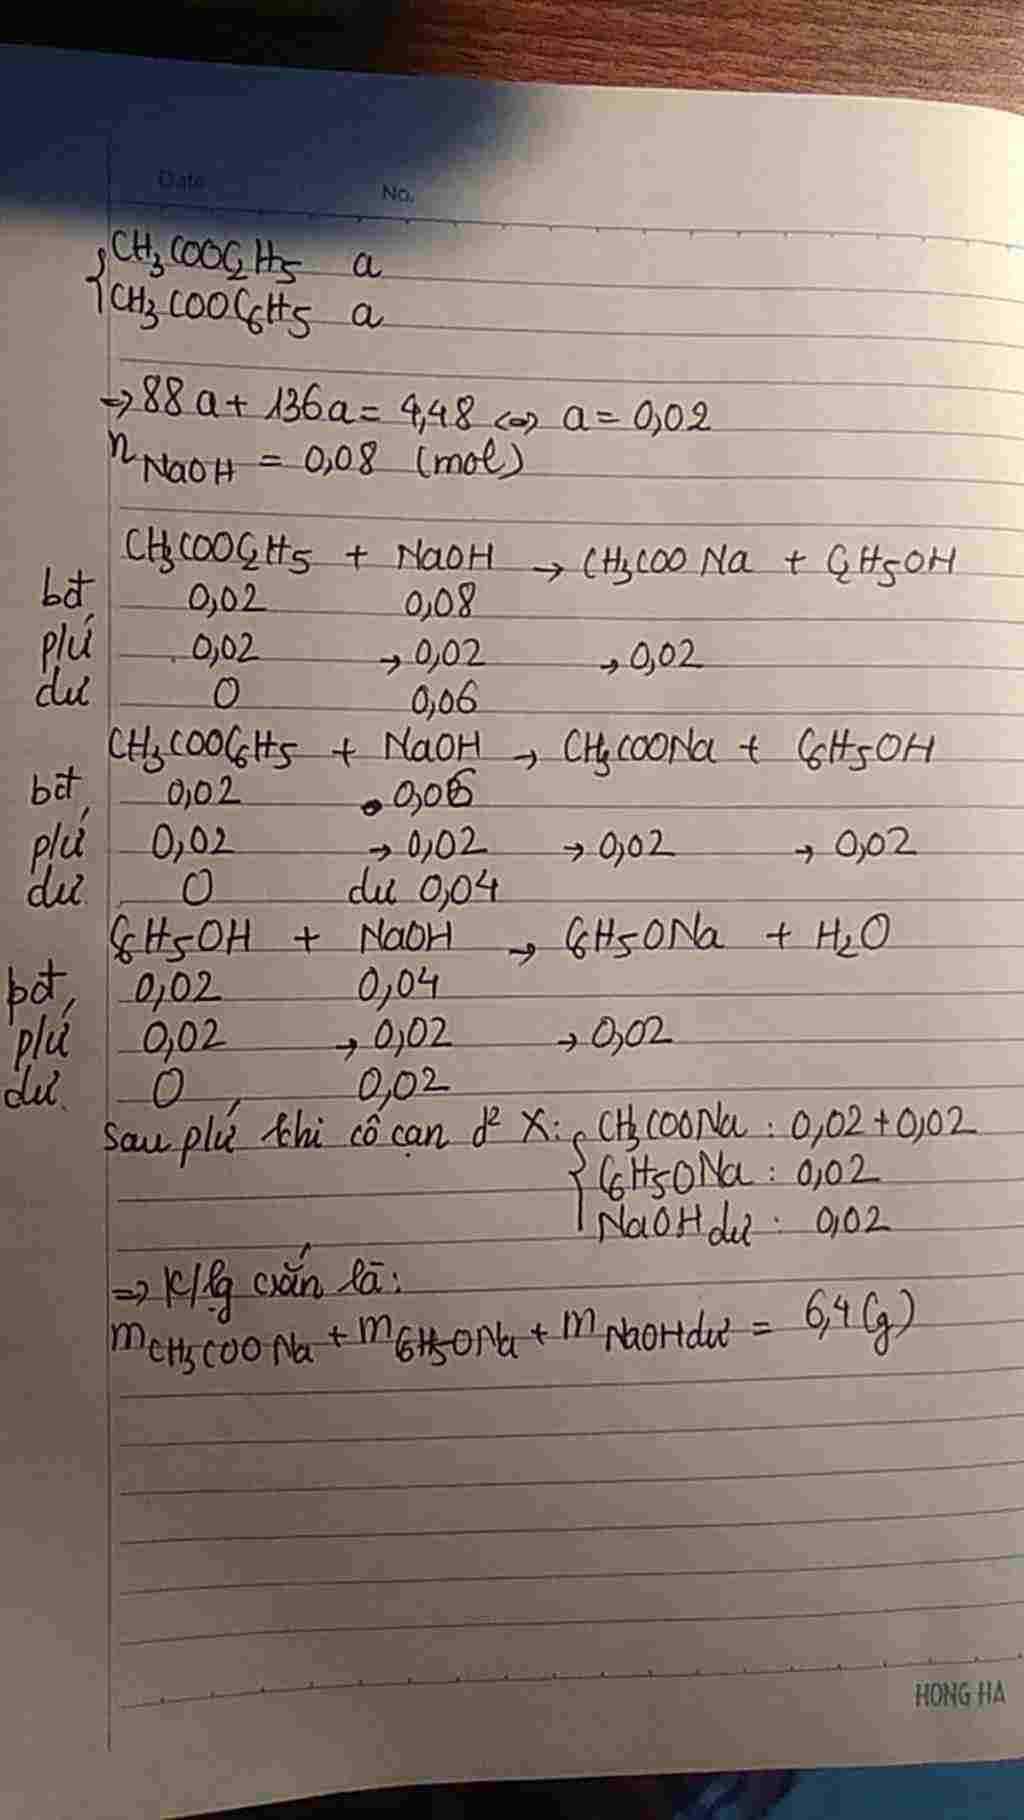 Date
No.
CH3COOC2H5 a
CH3COOC6H5 a
=> 88a + 136a = 4,48 <=> a = 0,02
nNaOH = 0,08 (mol)
CH3COOC2H5 + NaOH → CH3COONa + C2H5OH
bđ, 0,02 0,08
p/ứ 0,02 → 0,02 → 0,02
dư 0 0,06
CH3COOC6H5 + NaOH → CH3COONa + C6H5OH
bđ, 0,02 0,06
p/ứ 0,02 → 0,02 → 0,02 → 0,02
dư 0 dư 0,04
C6H5OH + NaOH → C6H5ONa + H2O
bđ, 0,02 0,04
p/ứ 0,02 → 0,02 → 0,02
dư. 0 0,02
Sau p/ứ khi cô cạn d² X: CH3COONa : 0,02 + 0,02
C6H5ONa : 0,02
NaOH dư : 0,02
=> K/lg crắn là:
mCH3COONa + mC6H5ONa + mNaOH dư = 6,4 (g)
HONG HA